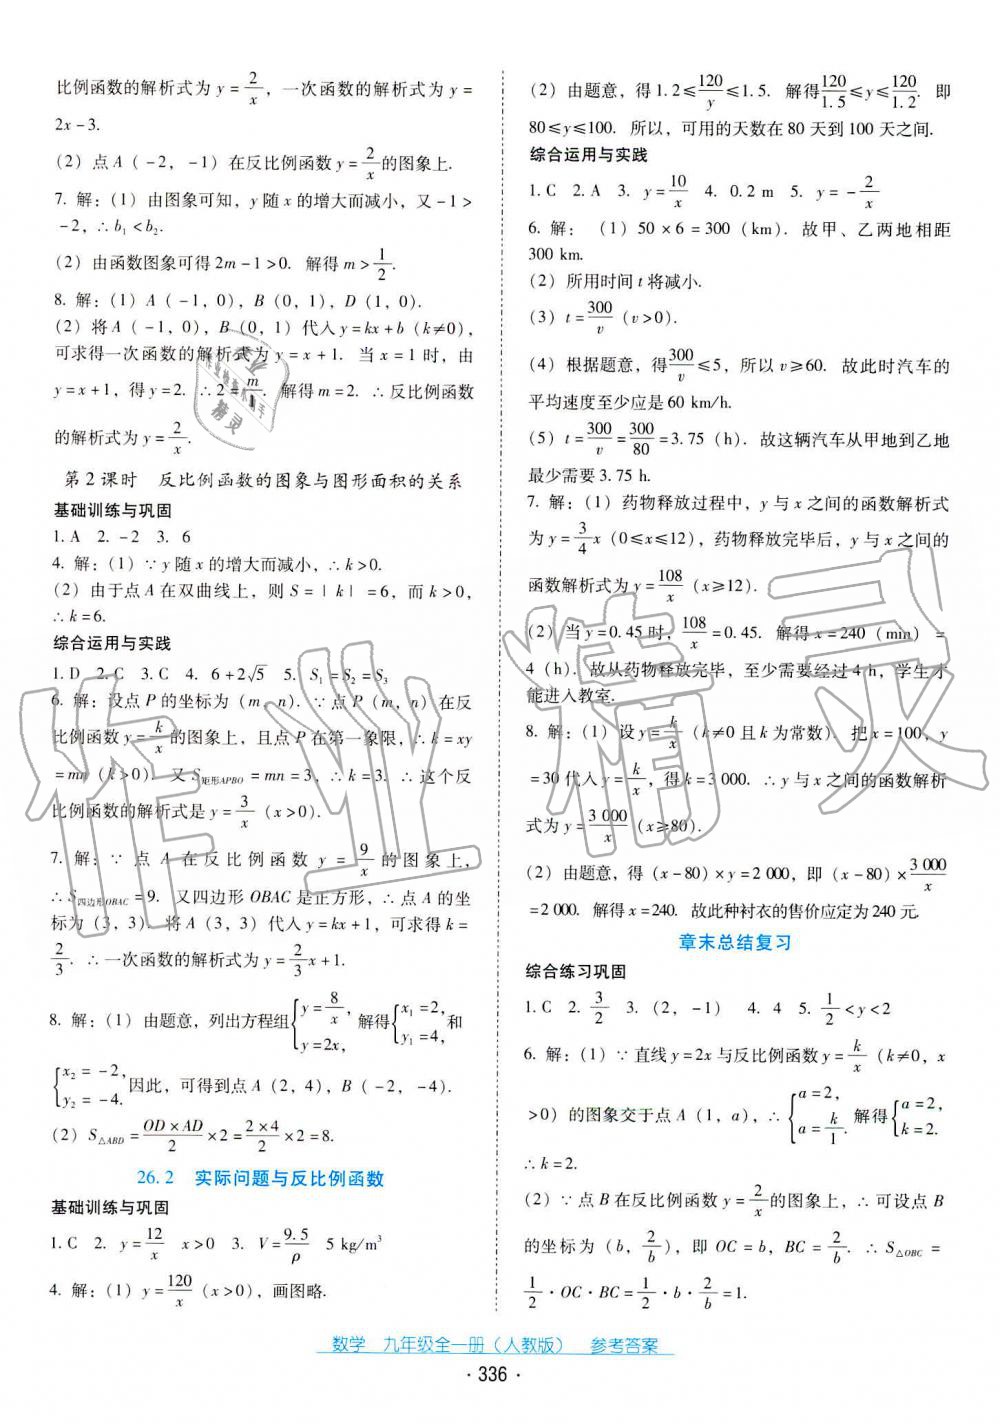 比例函数的解析式为 y = 2/x，一次函数的解析式为 y =
2x - 3.
(2) 点 A (-2, -1) 在反比例函数 y = 2/x 的图象上.
7. 解：(1) 由图象可知，y 随 x 的增大而减小，又 -1 >
-2，∴ b₁ < b₂.
(2) 由函数图象可得 2m - 1 > 0. 解得 m > 1/2.
8. 解：(1) A (-1, 0)，B (0, 1)，D (1, 0).
(2) 将 A (-1, 0)，B (0, 1) 代入 y = kx + b (k≠0)，
可求得一次函数的解析式为 y = x + 1. 当 x = 1 时，由
y = x + 1，得 y = 2. ∴ 2 = m/1. 解得 m = 2. ∴ 反比例函数
的解析式为 y = 2/x.
第 2 课时 反比例函数的图象与图形面积的关系
基础训练与巩固
1. A 2. -2 3. 6
4. 解：(1) ∵ y 随 x 的增大而减小，∴ k > 0.
(2) 由于点 A 在双曲线上，则 S = |k| = 6，而 k > 0，
∴ k = 6.
综合运用与实践
1. D 2. C 3. C 4. 6 + 2√5 5. S₁ = S₂ = S₃
6. 解：设点 P 的坐标为 (m, n). ∵ 点 P (m, n) 在反
比例函数 y = k/x 的图象上，且点 P 在第一象限，∴ k = xy
= mn (k > 0). 又 S矩形APBO = mn = 3，∴ k = 3. ∴ 这个反
比例函数的解析式是 y = 3/x (x > 0).
7. 解：∵ 点 A 在反比例函数 y = 9/x 的图象上，
∴ S四边形OBAC = 9. 又四边形 OBAC 是正方形，∴ 点 A 的坐
标为 (3, 3). 将 A (3, 3) 代入 y = kx + 1，可求得 k =
2/3. ∴ 一次函数的解析式为 y = 2/3 x + 1.
8. 解：(1) 由题意，列出方程组 { y = 8/x, y = 2x, 解得 { x₁ = 2, y₁ = 4, 和
{ x₂ = -2, y₂ = -4. 因此，可得到点 A (2, 4)，B (-2, -4).
(2) S△ABD = OD × AD/2 × 2 = 2 × 4/2 × 2 = 8.
26.2 实际问题与反比例函数
基础训练与巩固
1. C 2. y = 12/x x > 0 3. V = 9.5/ρ 5 kg/m³
4. 解：(1) y = 120/x (x > 0)，画图略.
(2) 由题意，得 1.2 ≤ 120/y ≤ 1.5. 解得 120/1.5 ≤ y ≤ 120/1.2. 即
80 ≤ y ≤ 100. 所以，可用的天数在 80 天到 100 天之间.
综合运用与实践
1. C 2. A 3. y = 10/x 4. 0.2 m 5. y = -2/x
6. 解：(1) 50 × 6 = 300 (km). 故甲、乙两地相距
300 km.
(2) 所用时间 t 将减小.
(3) t = 300/v (v > 0).
(4) 根据题意，得 300/v ≤ 5，所以 v ≥ 60. 故此时汽车的
平均速度至少应是 60 km/h.
(5) t = 300/v = 300/80 = 3.75 (h). 故这辆汽车从甲地到乙地
最少需要 3.75 h.
7. 解：(1) 药物释放过程中，y 与 x 之间的函数解析式
为 y = 3/4 x (0 ≤ x ≤ 12)，药物释放完毕后，y 与 x 之间的
函数解析式为 y = 108/x (x ≥ 12).
(2) 当 y = 0.45 时，108/x = 0.45. 解得 x = 240 (min) =
4 (h). 故从药物释放完毕，至少需要经过 4 h，学生才
能进入教室.
8. 解：(1) 设 y = k/x (k≠0 且 k 为常数). 把 x = 100，y
= 30 代入 y = k/x，得 k = 3 000. ∴ y 与 x 之间的函数解析
式为 y = 3 000/x (x ≥ 80).
(2) 由题意，得 (x - 80) × y = 2 000，即 (x - 80) × 3 000/x
= 2 000. 解得 x = 240. 故此种衬衣的售价应定为 240 元.
章末总结复习
综合练习巩固
1. C 2. 3/2 3. (2, -1) 4. 4 5. 1/2 < y < 2
6. 解：(1) ∵ 直线 y = 2x 与反比例函数 y = k/x (k≠0，x
> 0) 的图象交于点 A (1, a)，∴ { a = 2, a = k/1. 解得 { a = 2, k = 2.
∴ k = 2.
(2) ∵ 点 B 在反比例函数 y = 2/x 的图象上，∴ 可设点 B
的坐标为 (b, 2/b)，即 OC = b，BC = 2/b. ∴ S△OBC =
1/2 · OC · BC = 1/2 · b · 2/b = 1.
数学 九年级全一册（人教版） 参考答案
· 336 ·
作业精灵